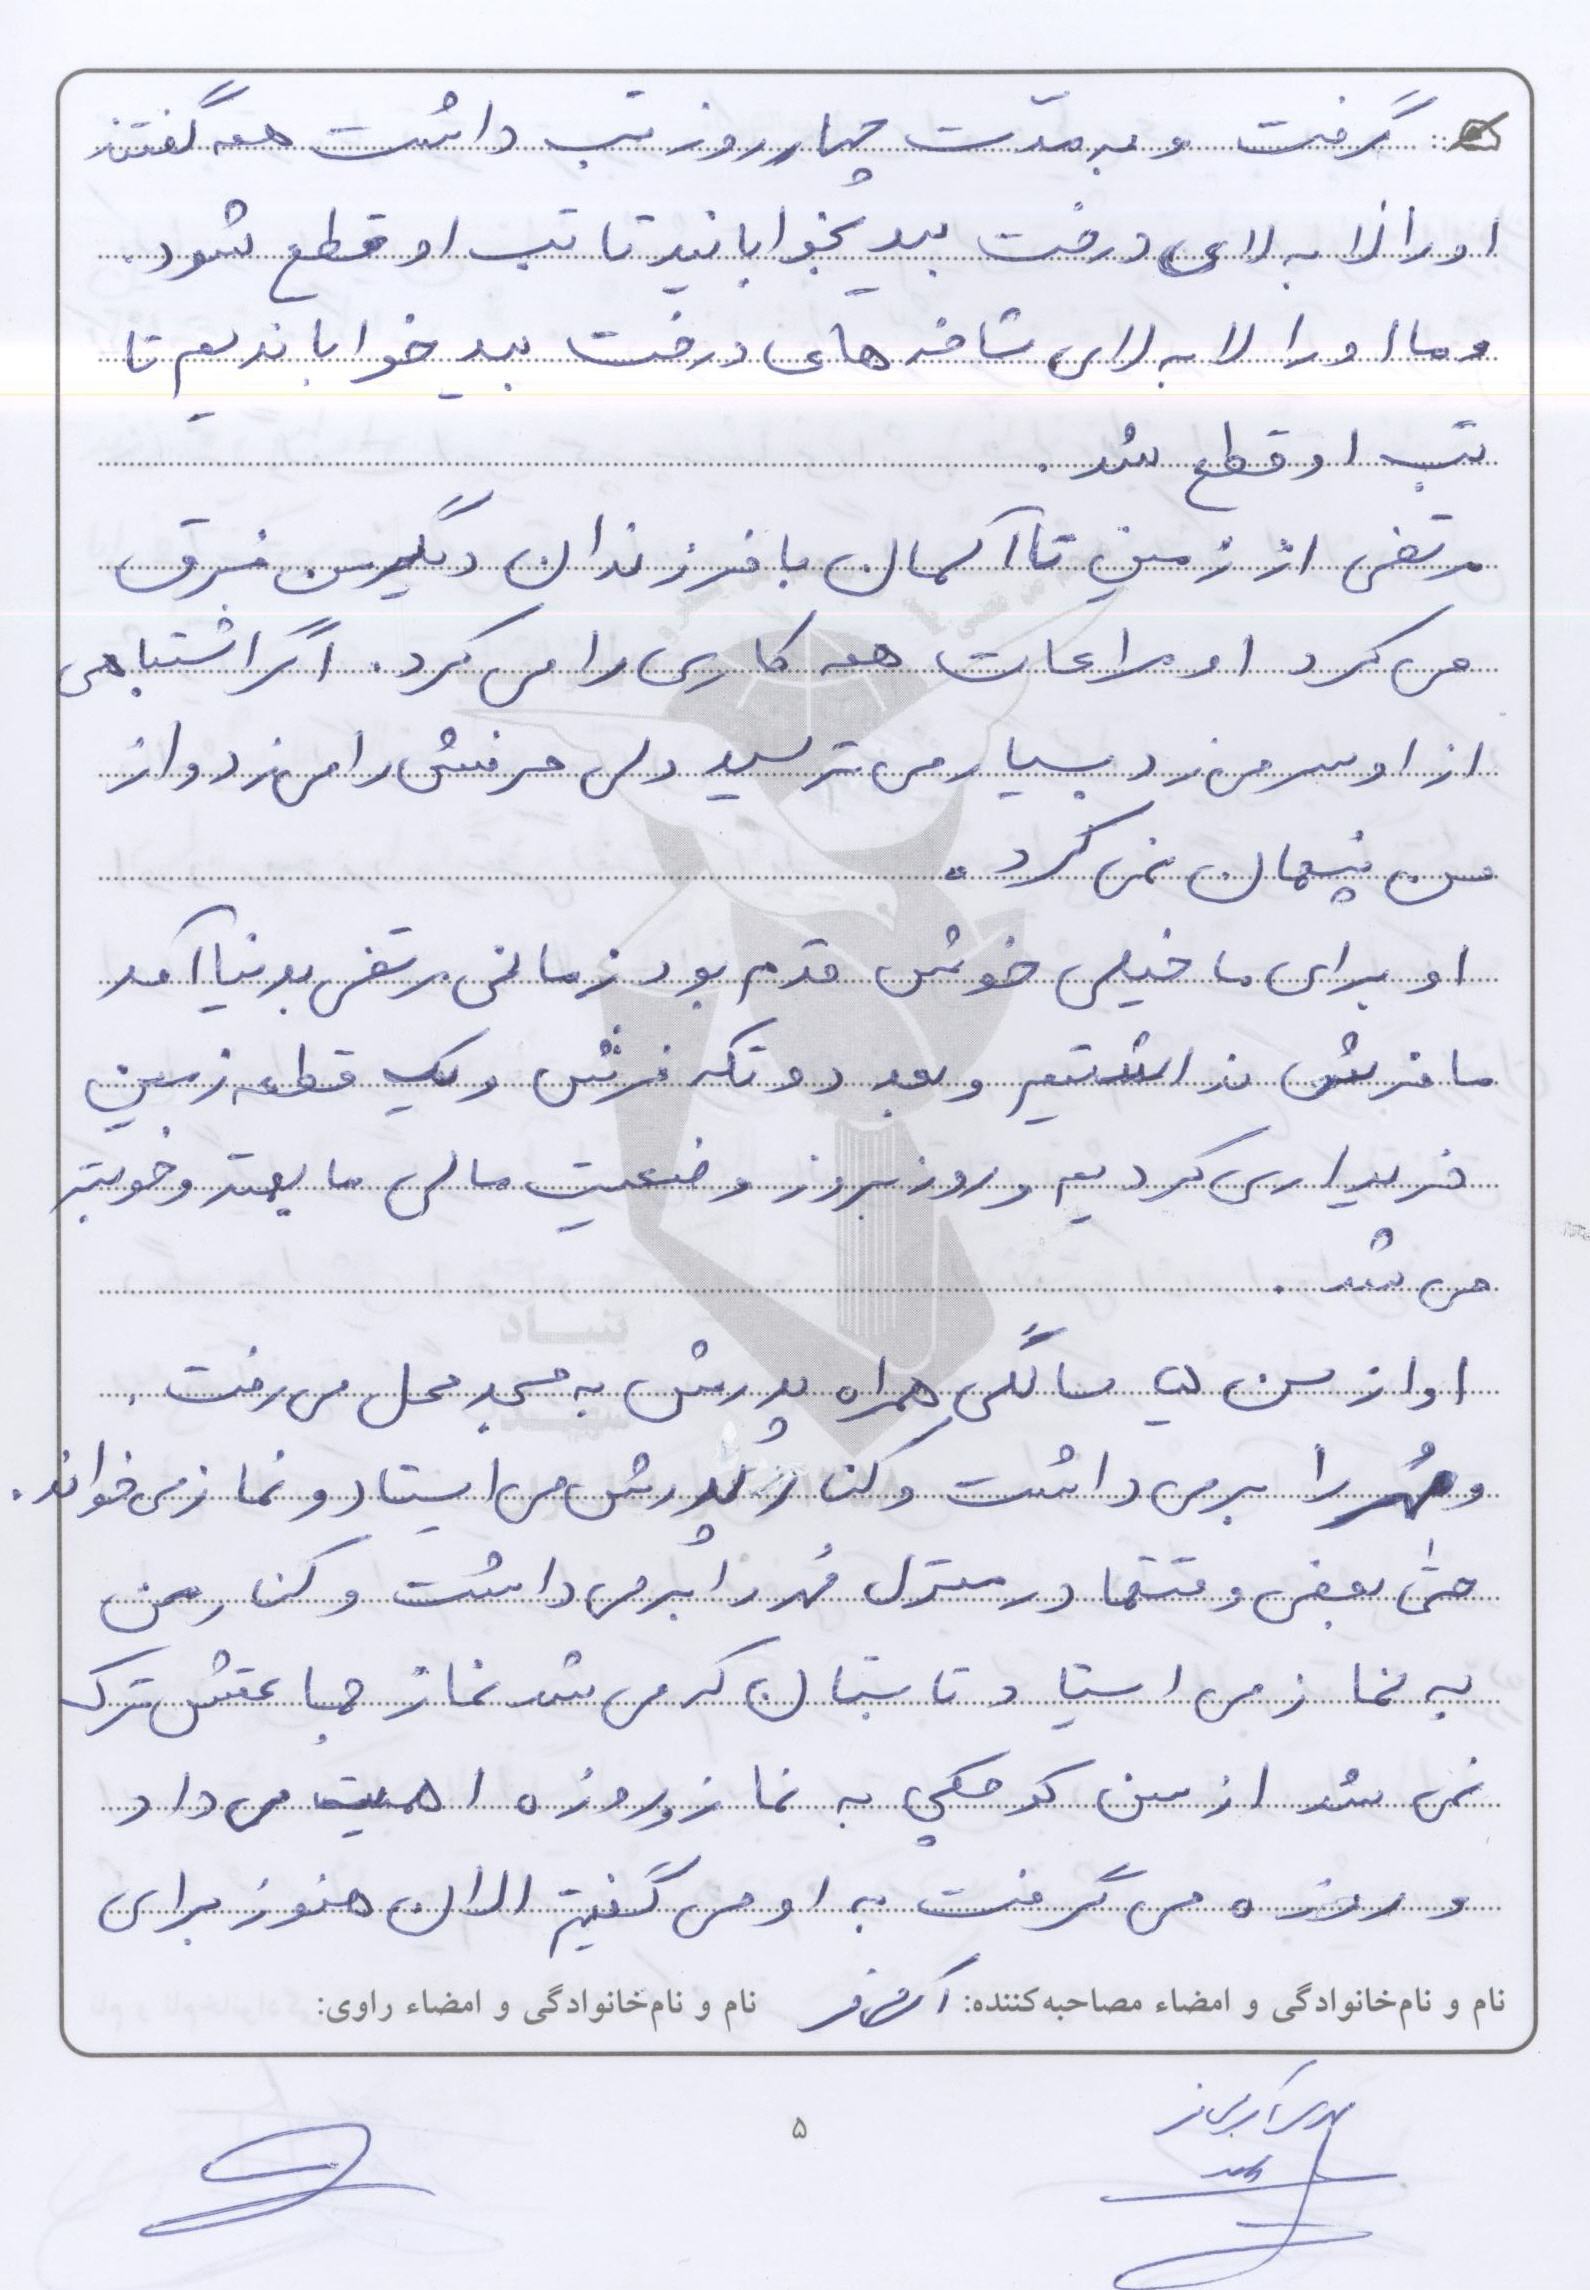 گرفت و به مدّت چهار روز تب داشت همه گفتند
او را لا به لای درخت بید بخوابانید تا تب او قطع شود.
و ما او را لا به لای شاخه های درخت بید خواباندیم تا
تب او قطع شد.
مرتضی از زمین تا آسمان با فرزندان دیگر من فرق
می کرد او مراعات همه کاری را می کرد. اگر اشتباهی
از او سر می زد بسیار می ترسید ولی حرفش را می زد و از
من پنهان نمی کرد.
او برای ما خیلی خوش قدم بود زمانی مرتضی بدنیا آمد
ما فرش نداشتیم و بعد دو تکه فرش و یک قطعه زمین
خریداری کردیم و روز بروز وضعیت مالی ما بهتر و خوبتر
می شد.
او از سن سالگی همراه پدرش به مسجد محل می رفت.
و مُهر را بر می داشت و کنار پدرش می ایستاد و نماز می خواند.
حتی بعضی وقتها در منزل مُهر را بر می داشت و کنار من
به نماز می استاد تابستان که می شد نماز جماعتش ترک
نمی شد از سن کوچکی به نماز و روزه اهمیت می داد
و روزه می گرفت به او می گفتیم الان هنوز برای
نام و نام‌خانوادگی و امضاء مصاحبه‌کننده:
نام و نام‌خانوادگی و امضاء راوی:
بنیاد
شهید
۵